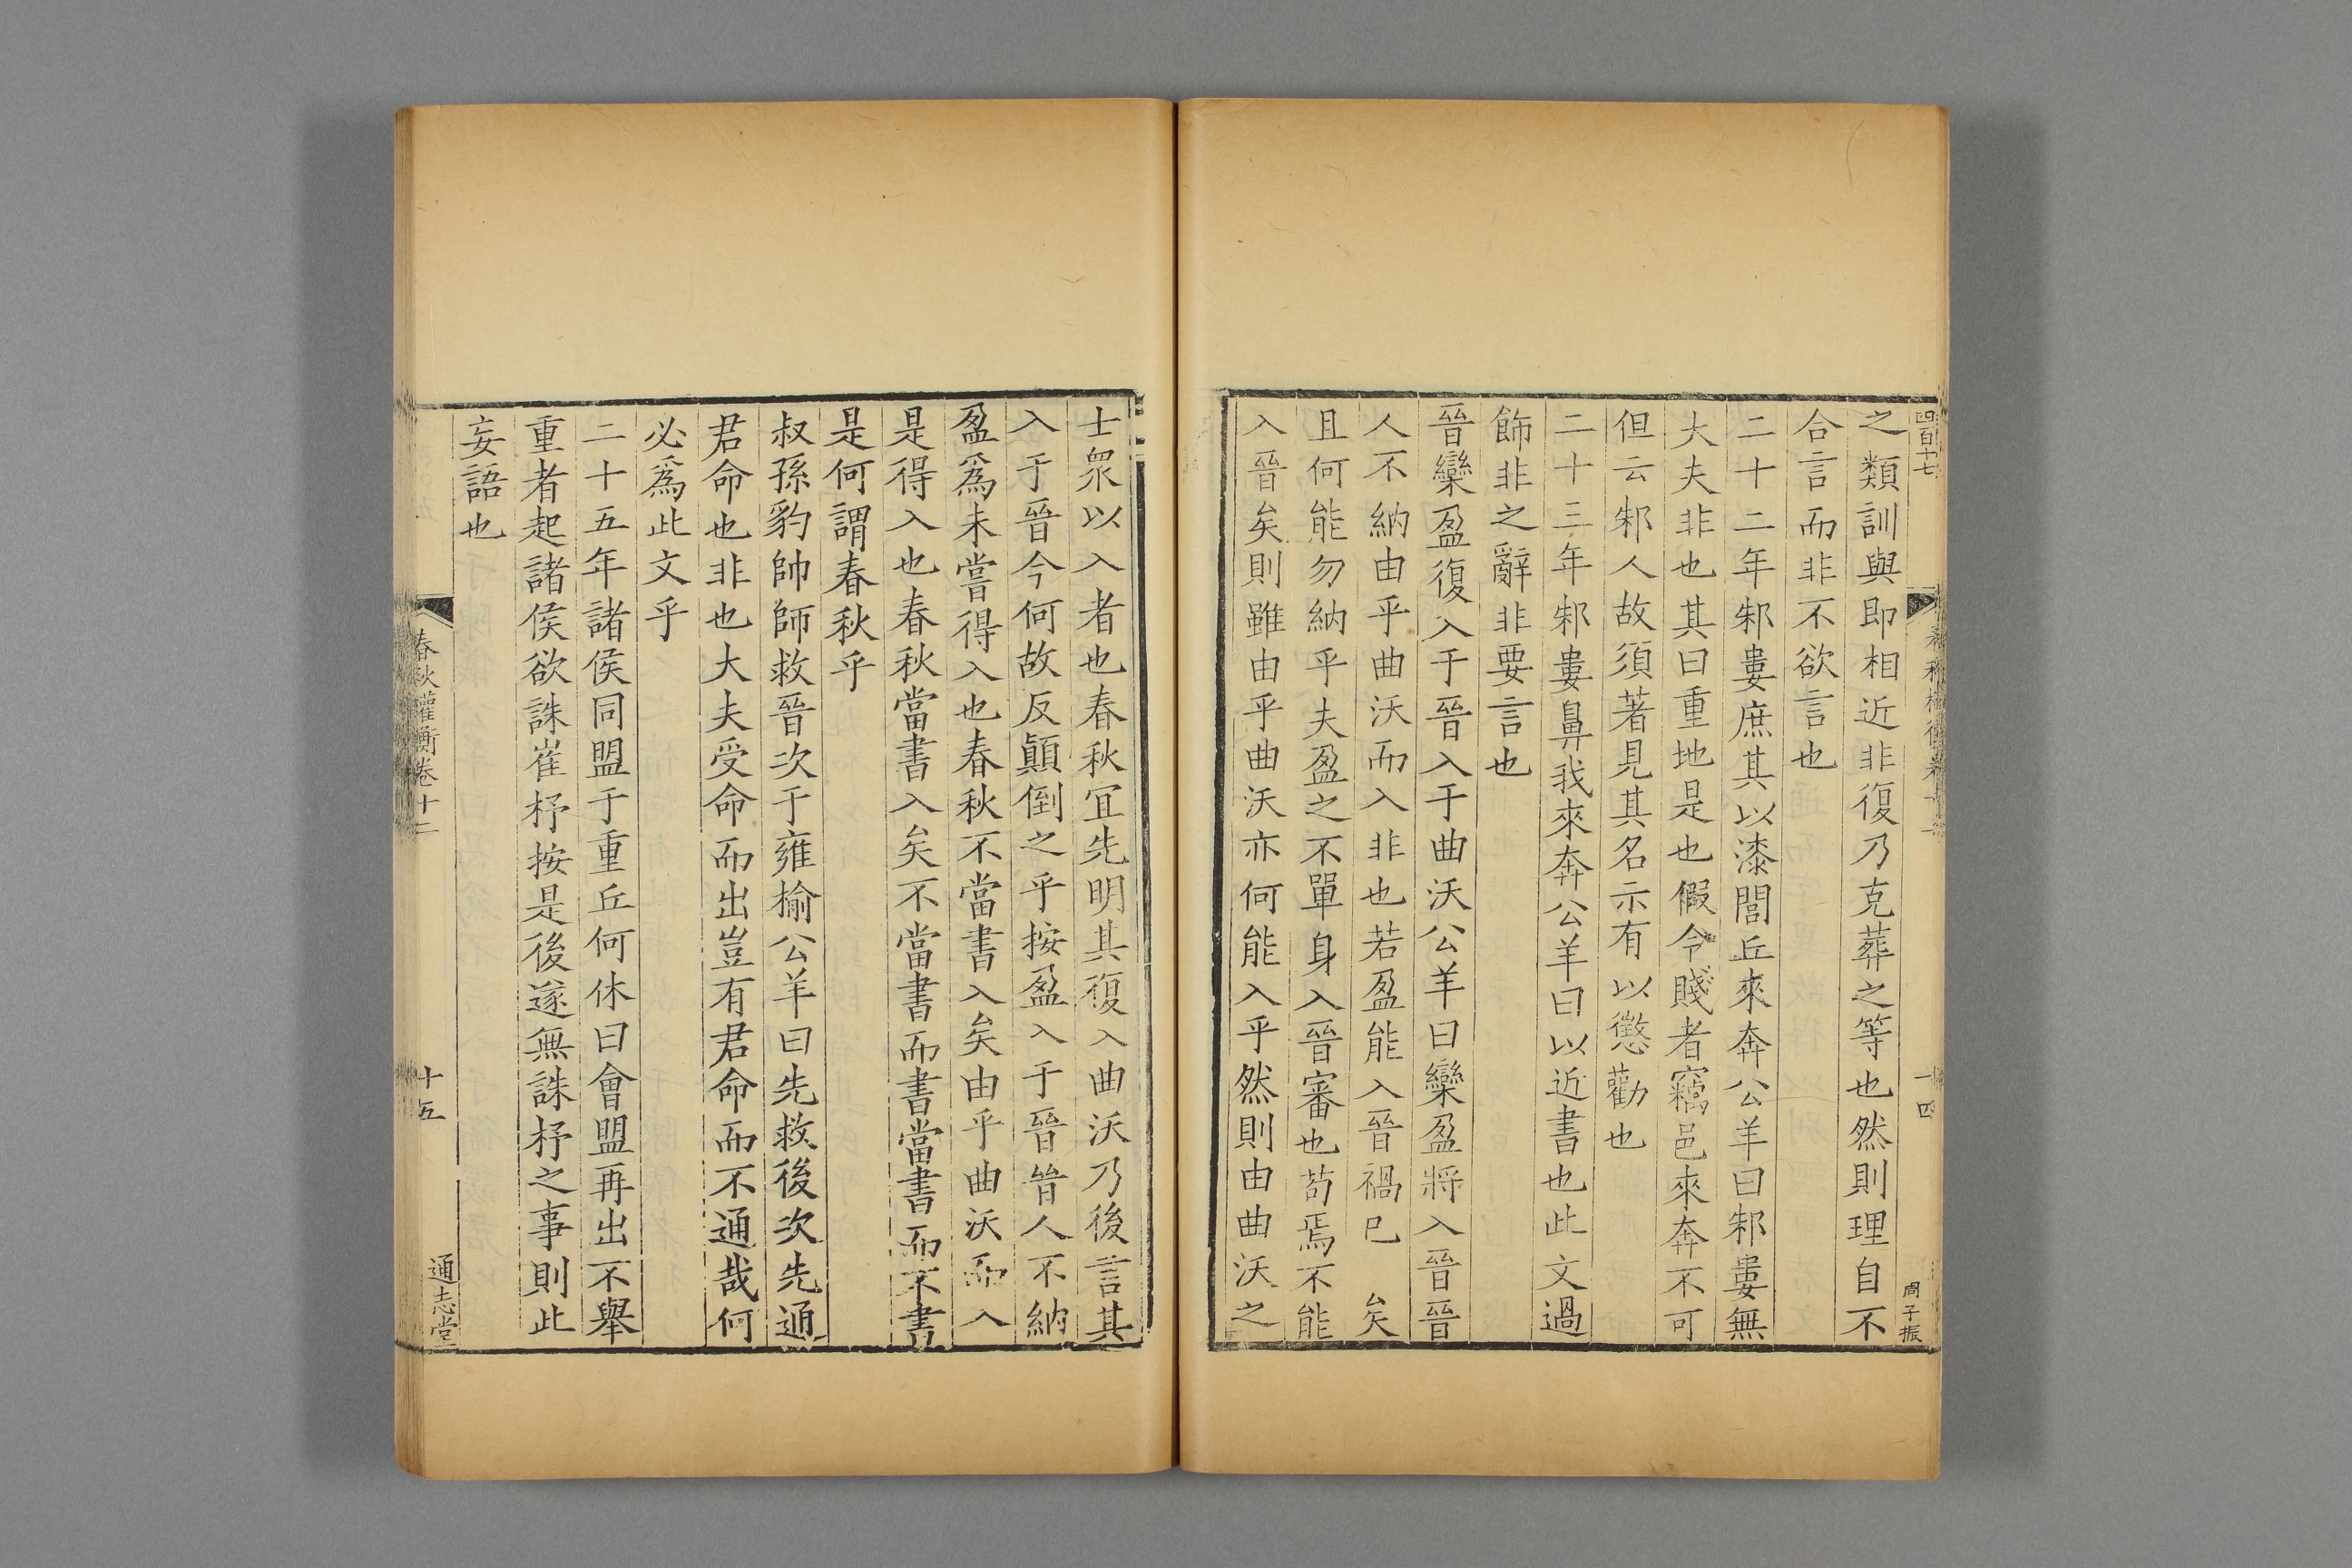 四百十七
春秋權衡卷十二
十四
周子振
之類訓與即相近非復乃克葬之等也然則理自不
合言而非不欲言也
二十二年邾婁庶其以漆閭丘來奔公羊曰邾婁無
大夫非也其曰重地是也假令賤者竊邑來奔不可
但云邾人故須著見其名示有以懲勸也
二十三年邾婁鼻我來奔公羊曰以近書也此文過
飾非之辭非要言也
晉欒盈復入于晉入于曲沃公羊曰欒盈將入晉晉
人不納由乎曲沃而入非也若盈能入晉禍巳矣
且何能勿納乎夫盈之不單身入晉審也苟焉不能
入晉矣則雖由乎曲沃亦何能入乎然則由曲沃之
士衆以入者也春秋宜先明其復入曲沃乃後言其
入于晉今何故反顛倒之乎按盈入于晉晉人不納
盈爲未嘗得入也春秋不當書入矣由乎曲沃而入
是得入也春秋當書入矣不當書而書當書而不書
是何謂春秋乎
叔孫豹帥師救晉次于雍榆公羊曰先救後次先通
君命也非也大夫受命而出豈有君命而不通哉何
必爲此文乎
二十五年諸侯同盟于重丘何休曰會盟再出不舉
重者起諸侯欲誅崔杼按是後遂無誅杼之事則此
妄語也
春秋權衡卷十二
十五
通志堂